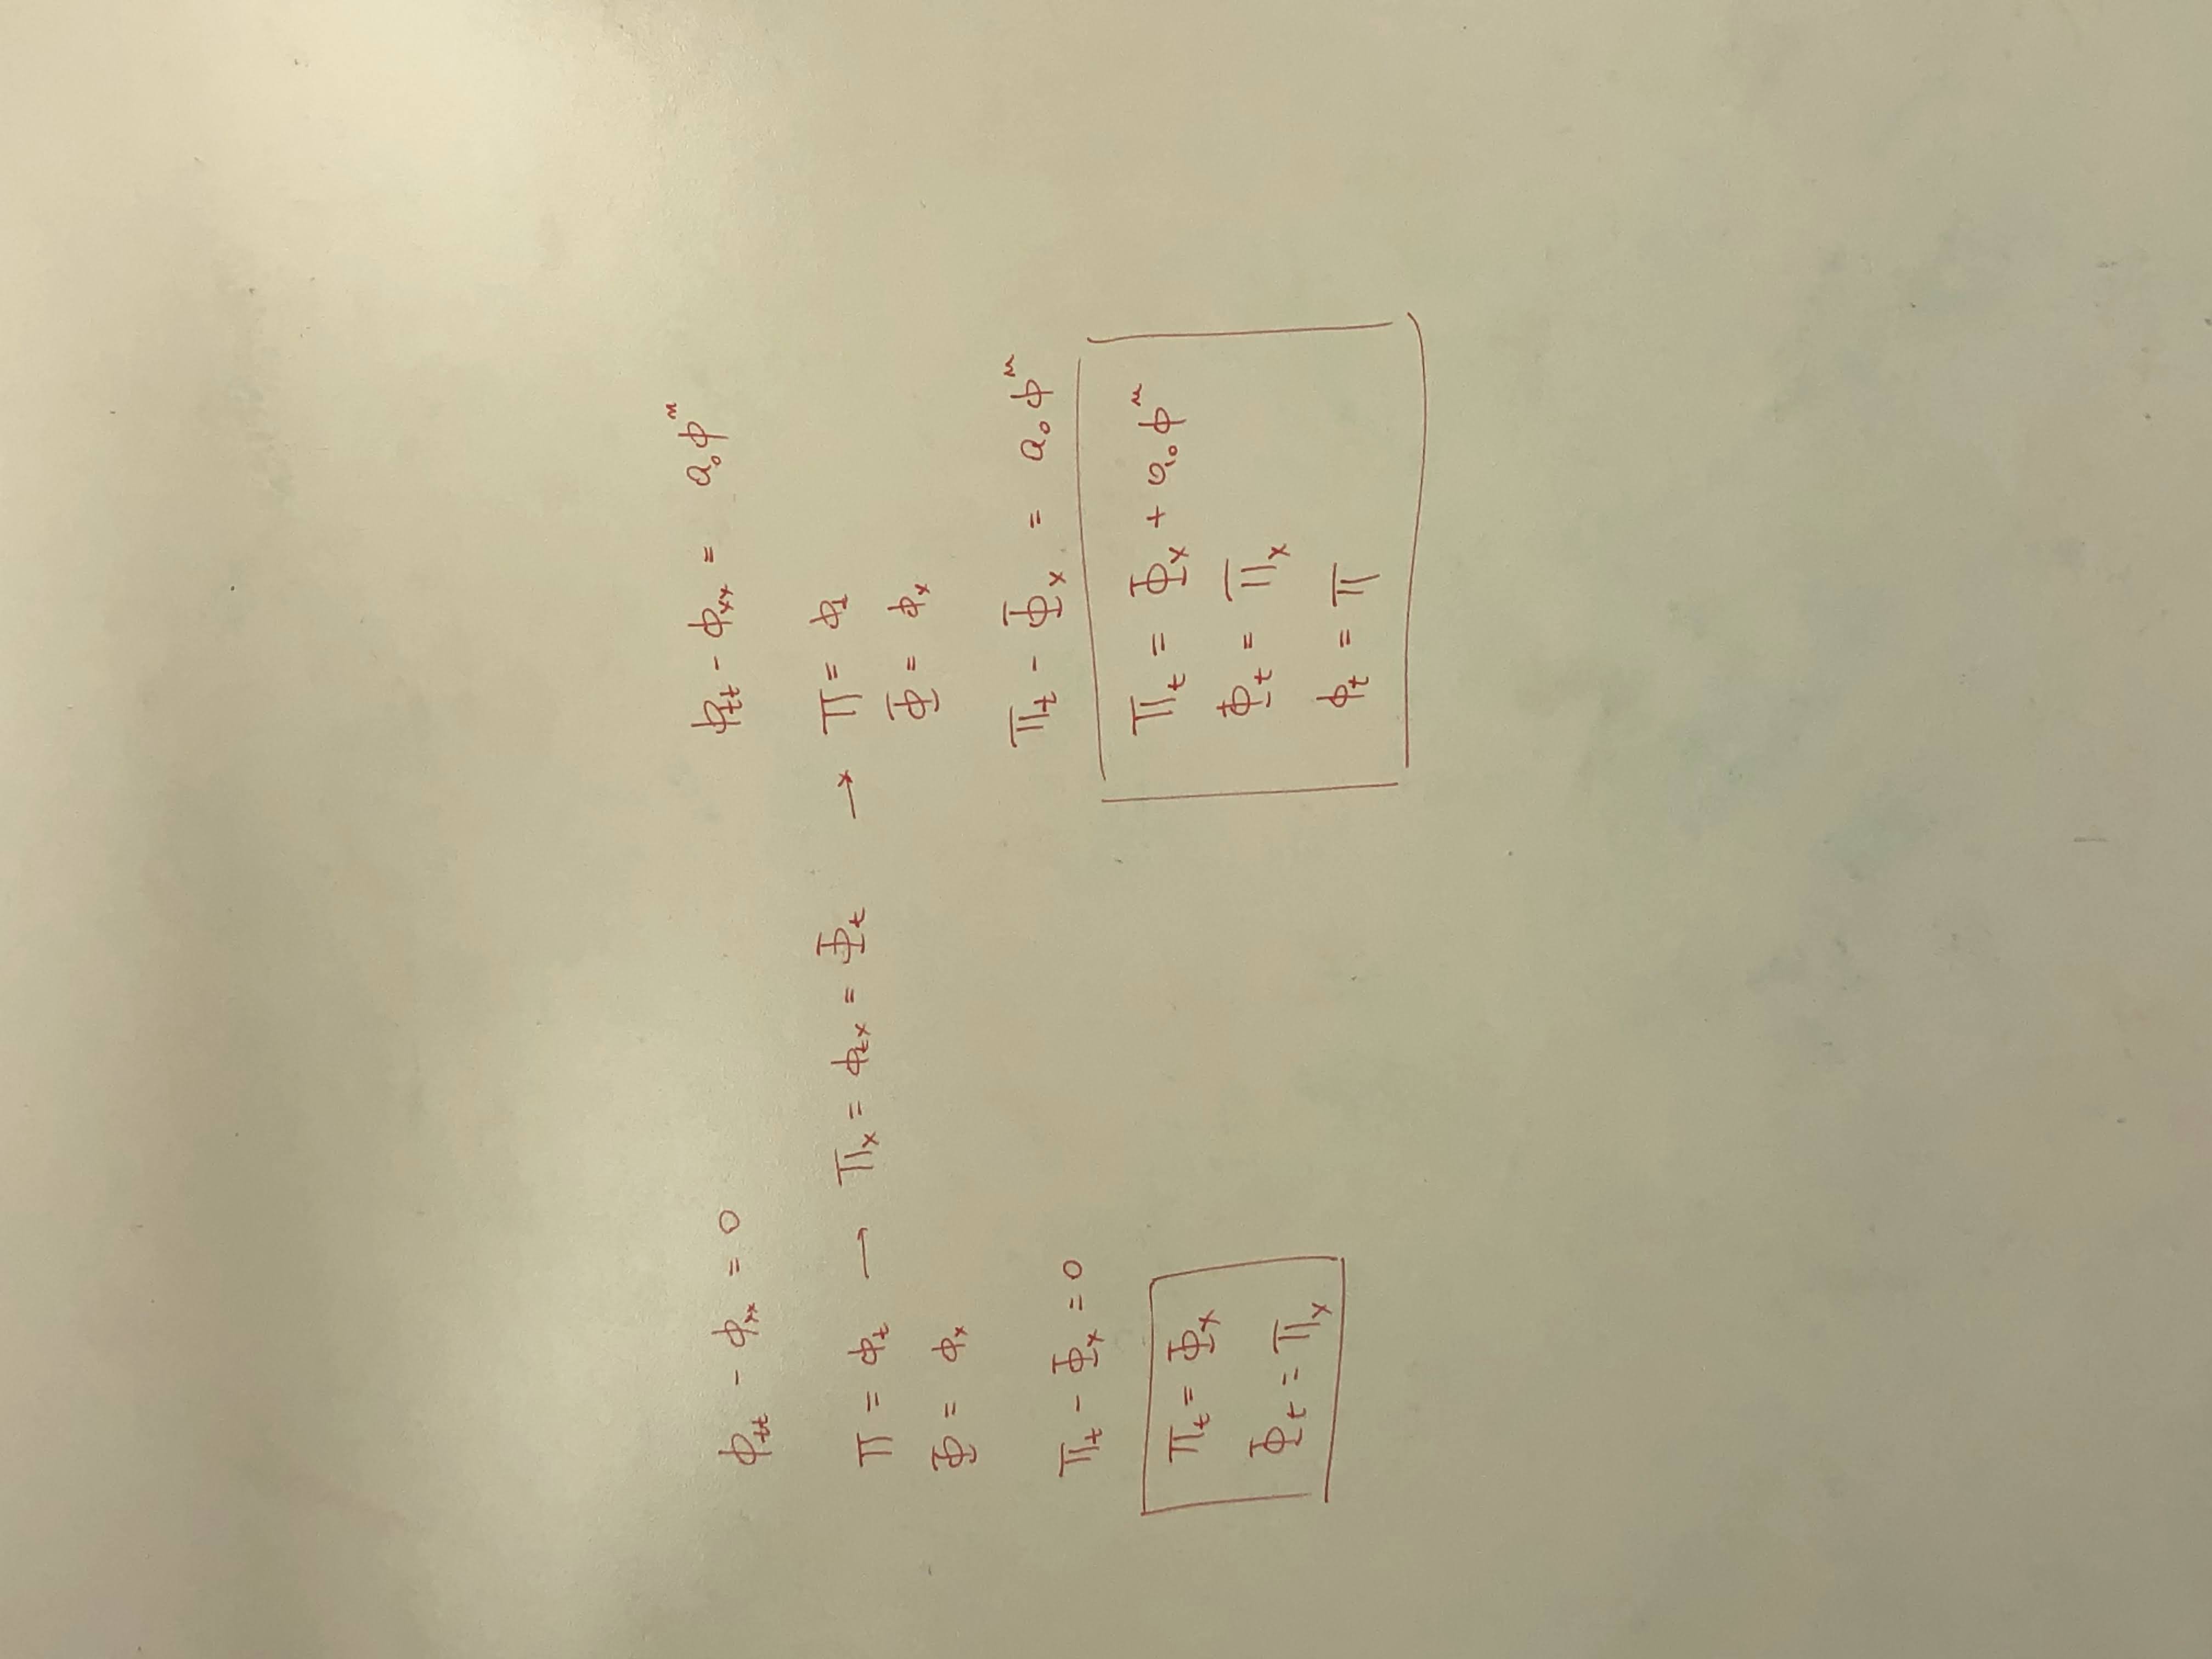 ϕ_tt - ϕ_xx = 0
Π = ϕ_t → Π_x = ϕ_tx = Φ_t
Φ = ϕ_x
Π_t - Φ_x = 0
Π_t = Φ_x
Φ_t = Π_x
ϕ_tt - ϕ_xx = a_0 ϕ^n
→ Π = ϕ_t
Φ = ϕ_x
Π_t - Φ_x = a_0 ϕ^n
Π_t = Φ_x + a_0 ϕ^n
Φ_t = Π_x
ϕ_t = Π